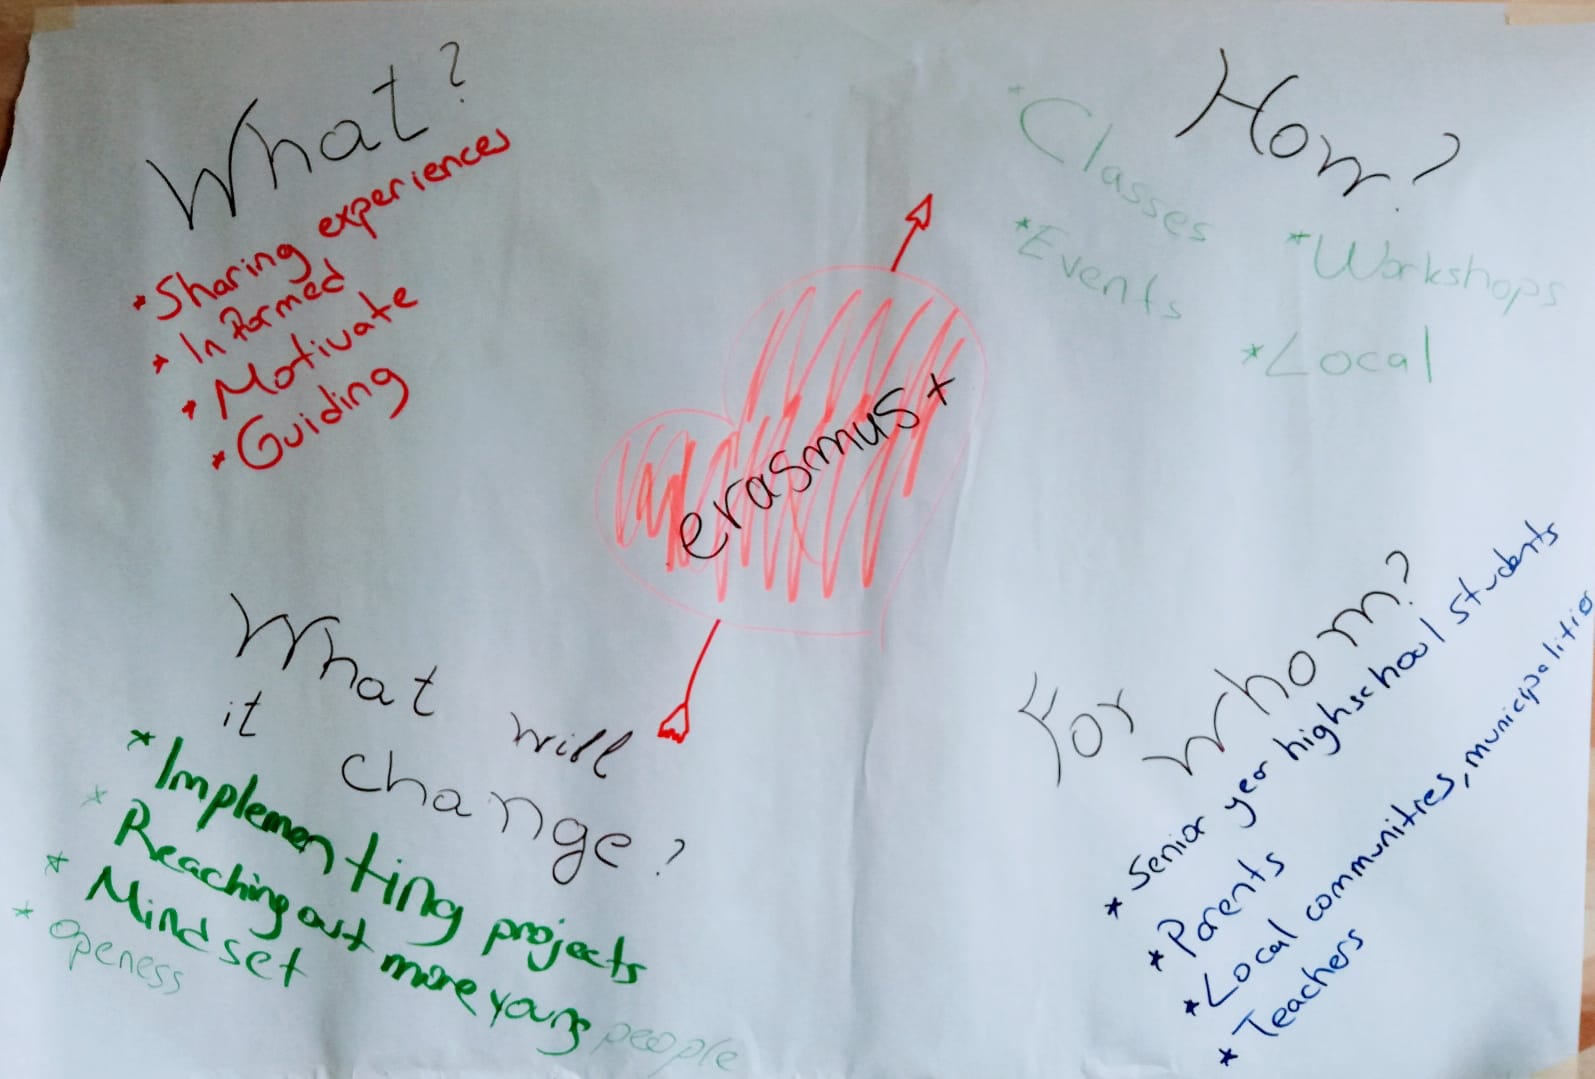 What?
* Sharing experiences
* Informed
* Motivate
* Guiding
How?
* Classes
* Events
* Workshops
* Local
erasmus+
What will
it change?
* Implementing projects
* Reaching out more young people
* Mindset
* openess
For whom?
* Senior year highschool students
* Parents
* Local communities, municipalities
* Teachers